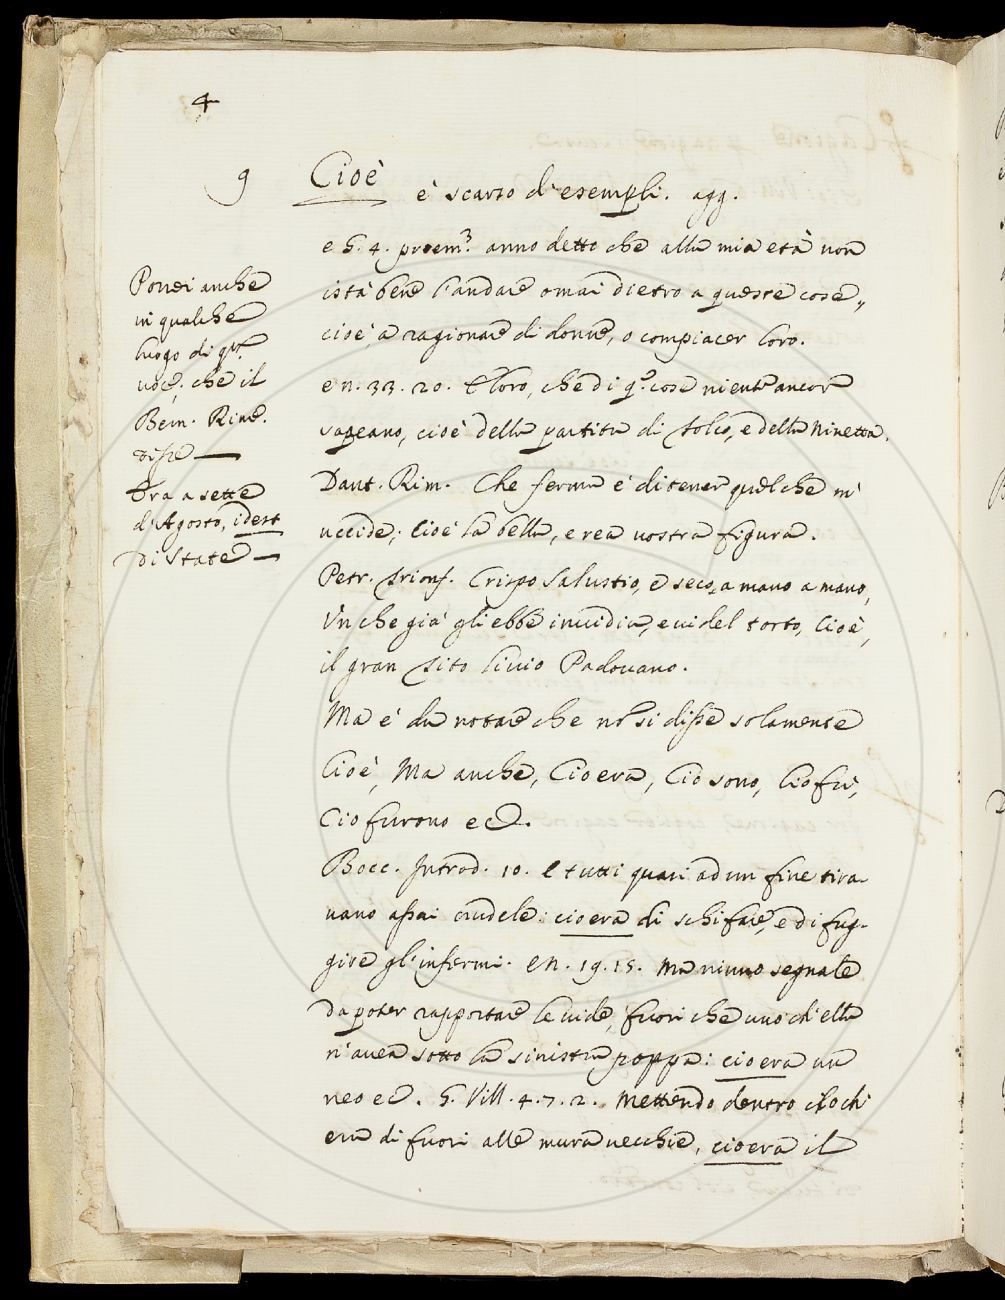 4
9 Cioè è scarso di esempli. agg.
e g. 4. proem.º anno detto che alla mia età non
istà bene l'andare omai dietro a queste cose,,
cioè, a ragionare di donne, o compiacer loro.
e n. 33. 20. e loro, che di q.e cose niente ancora
sapeano, cioè della partita di Folco, e della Ninetta.
Dant. Rim. Che ferma è di tener quel che m'
uccide; Cioè la bella, e rea vostra figura.
Petr. Trionf. Crispo Salustio, e seco, a mano a mano,
Un che già gli ebbe invidia, e videl torto, Cioè,
il gran Tito Livio Padovano.
Ma è da notare che nō si disse solamente
Cioè, Ma anche, Cio era, Cio sono, Cio fù,
Cio furono ec.
Bocc. Introd. 10. e tutti quasi ad un fine tira-
vano assai crudele: cio era di schifare, e di fug-
gire gl'infermi. e n. 19. 15. Ma niuno segnale
da poter rapportare le vide, fuori che uno ch'ella
n'avea sotto la sinistra poppa: cio era un
neo ec. G. Vill. 4. 7. 2. Mettendo dentro ciò chi
era di fuori alle mura vecchie, cio era il
Ponei anche
in qualche
luogo di q.ta
voce. che il
Bem. Rime.
disse —
Ora a sette
d'Agosto, idest
di State —